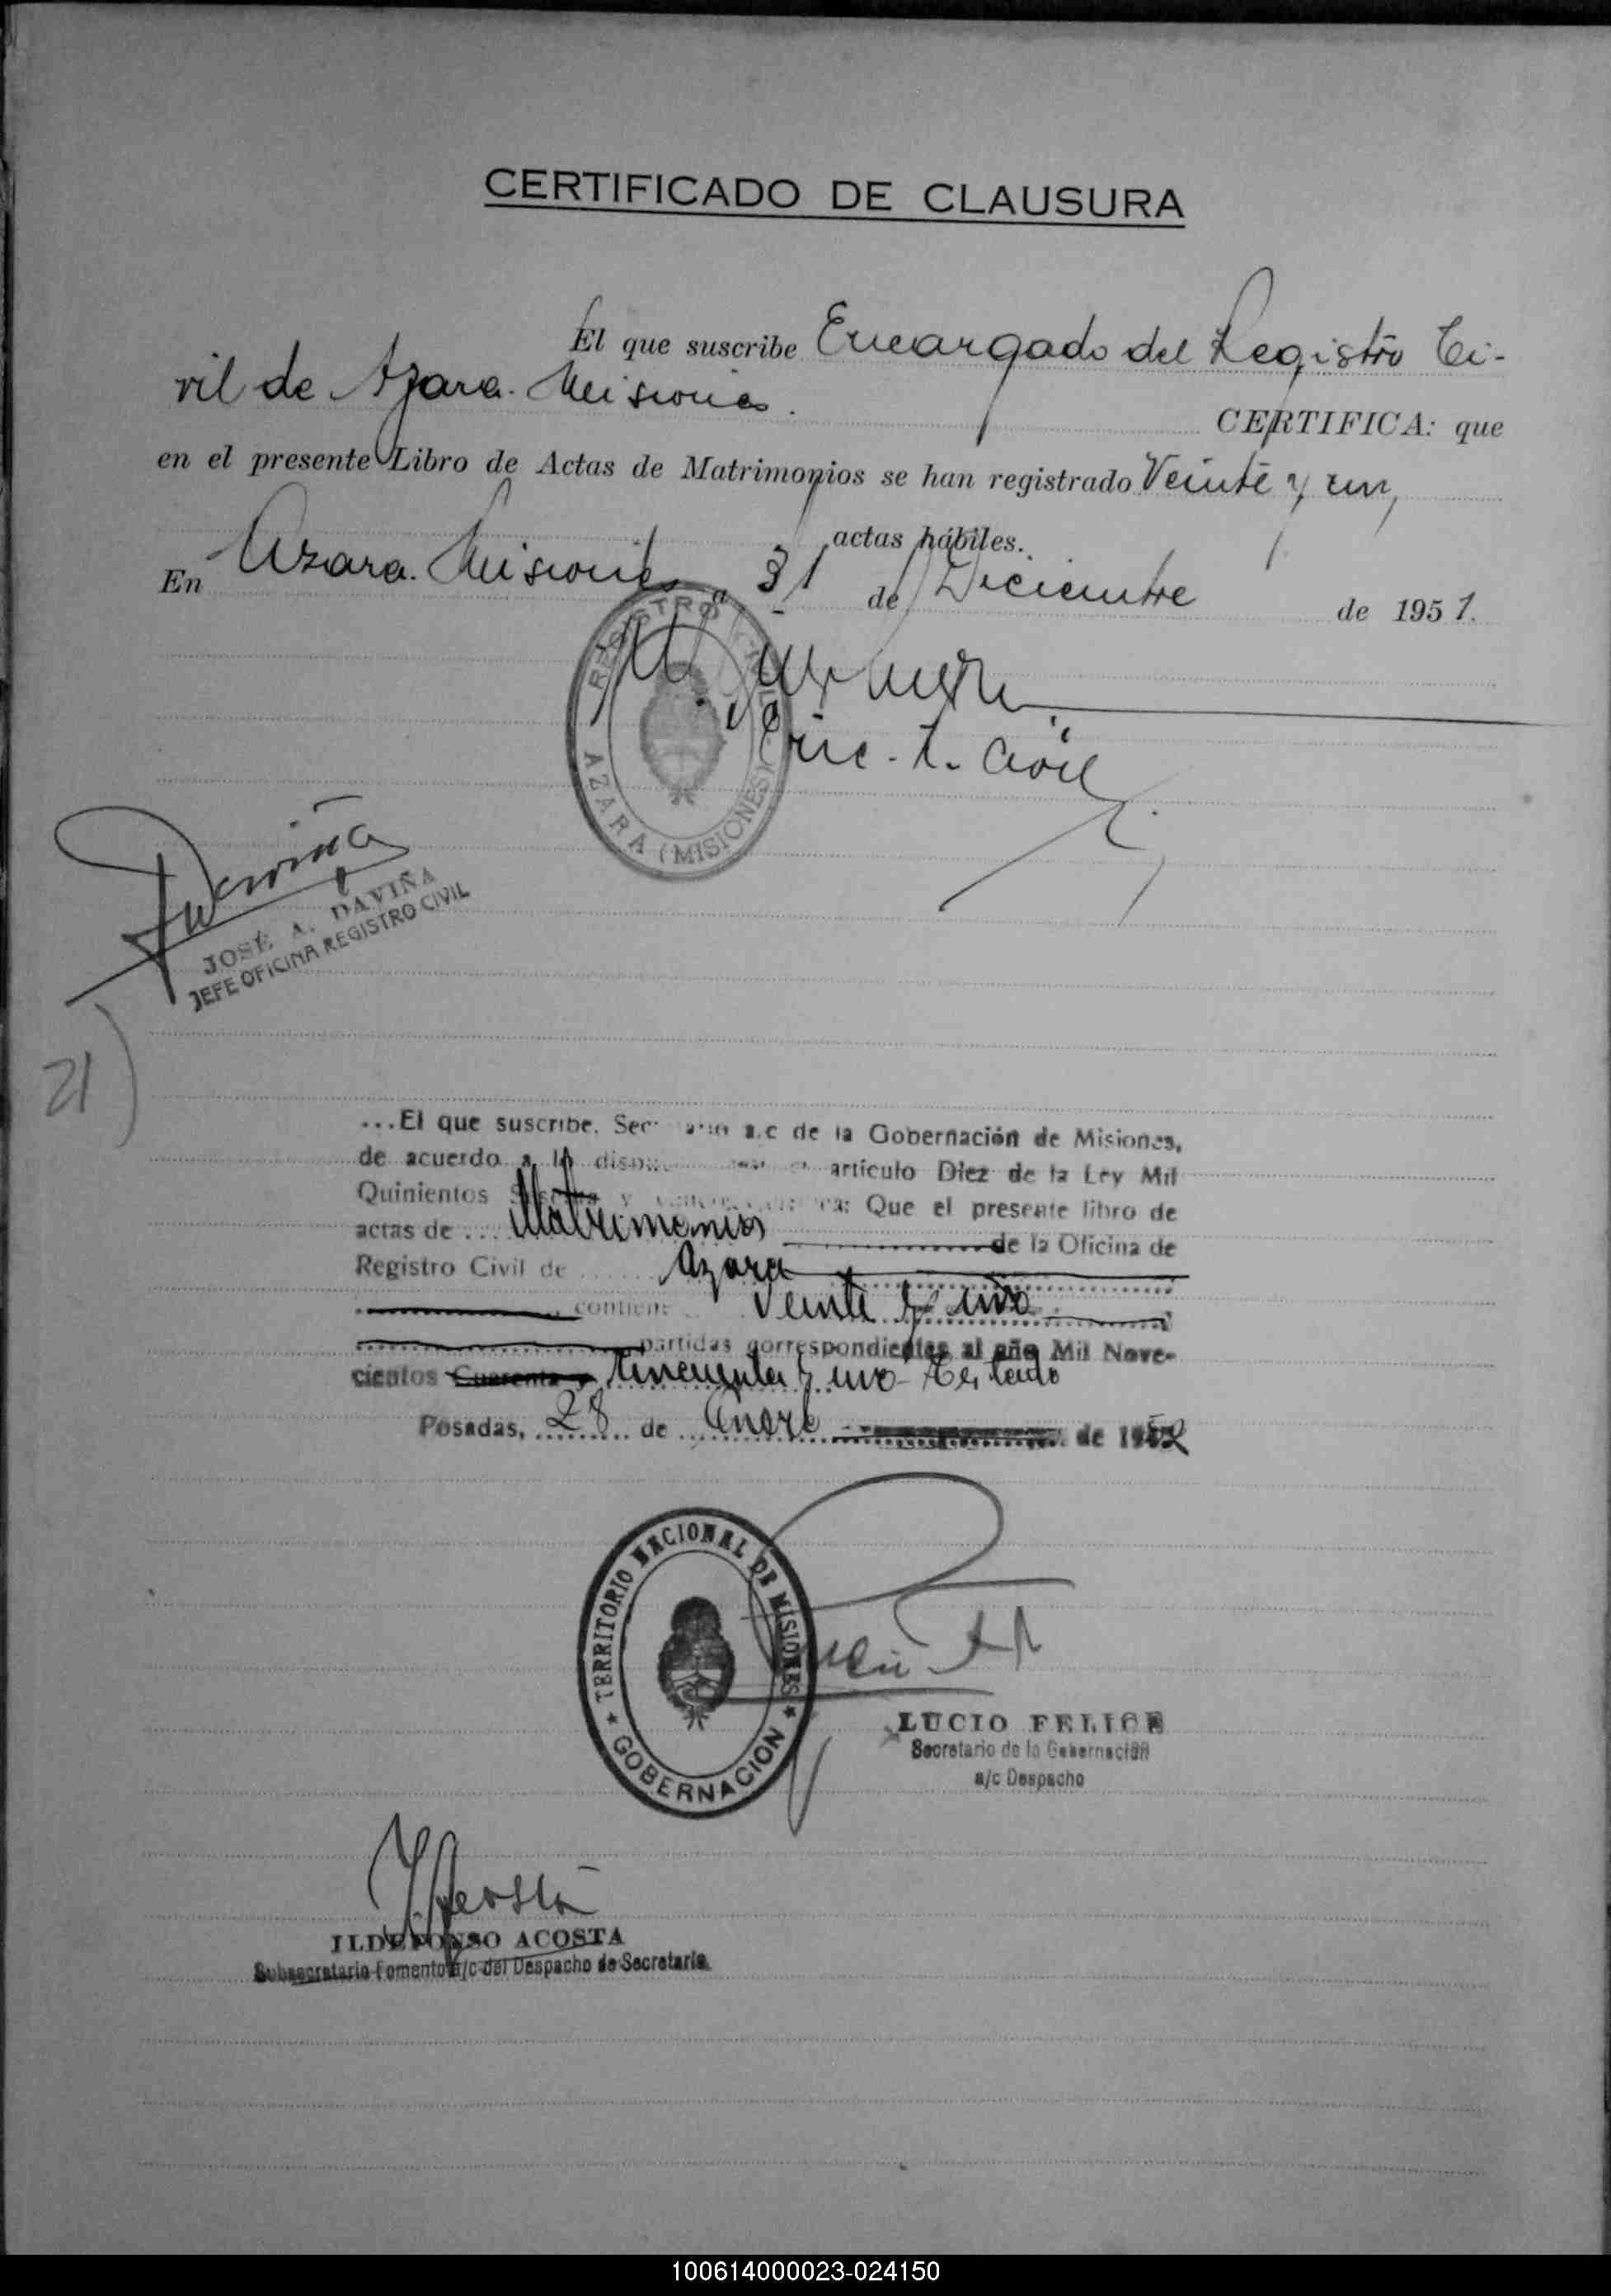 CERTIFICADO DE CLAUSURA
El que suscribe Encargado del Registro Ci-
vil de Azara. Misiones. CERTIFICA: que
en el presente Libro de Actas de Matrimonios se han registrado Veinte y un,
actas hábiles.
En Azara. Misiones, a 31 de Diciembre de 1951.
REGISTRO CIVIL
AZARA (MISIONES)
Enc. R. Civil
Daviña
JOSÉ A. DAVIÑA
JEFE OFICINA REGISTRO CIVIL
21)
...El que suscribe. Secretario a.c de la Gobernación de Misiones,
de acuerdo a lo artículo Diez de la Ley Mil
Quinientos y Que el presente libro de
actas de Matrimonios de la Oficina de
Registro Civil de Azara
contiene Veinte y uno
partidas correspondientes al año Mil Nove-
cientos Cuarenta y Cincuenta y uno - Testado
Posadas, 28 de Enero de 1952
TERRITORIO NACIONAL DE MISIONES
GOBERNACION
LUCIO FELICE
Secretario de la Gobernación
a/c Despacho
Acosta
ILDEFONSO ACOSTA
Subsecretario Fomento a/c del Despacho de Secretaría
100614000023-024150